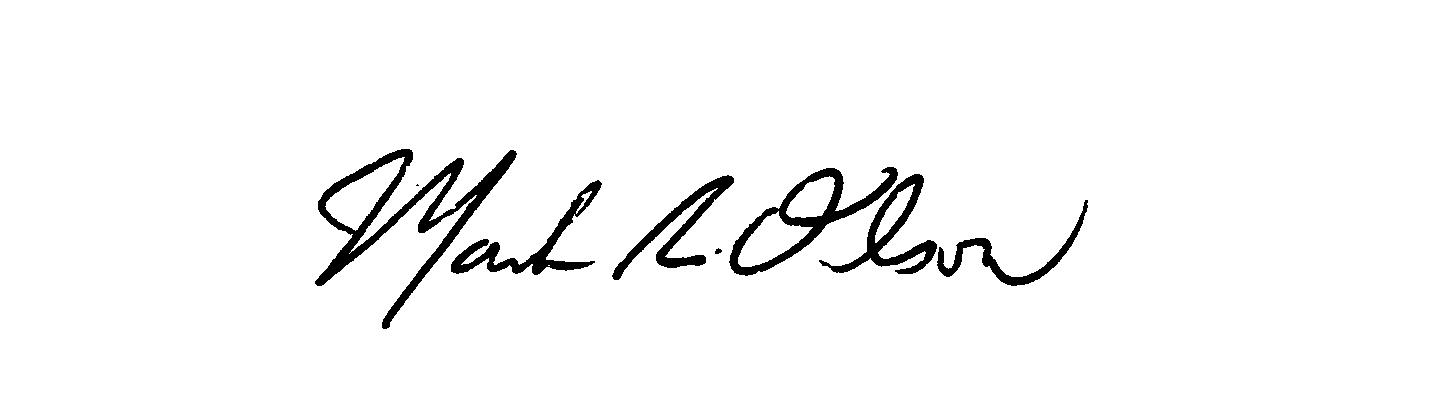 Mark R. Olson